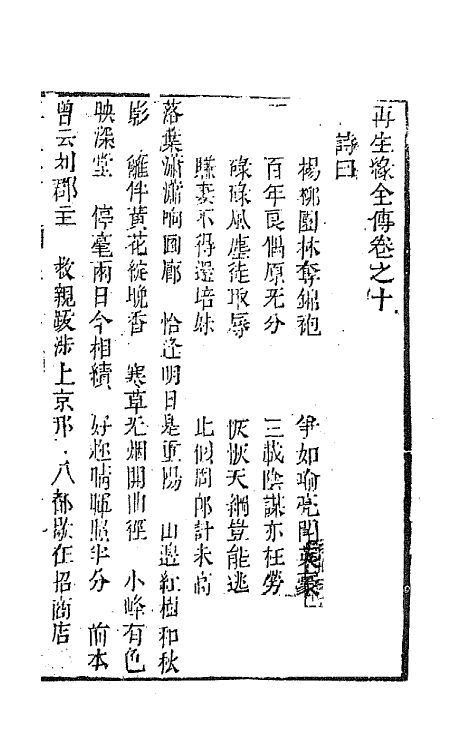 再生緣全傳卷之十
詩曰
楊柳園林奪錦袍　爭如瑜亮鬪英豪
百年良偶原无分　三載陰謀亦枉勞
碌碌風塵徒取辱　恢恢天網豈能逃
賺妻不得還培妹　此個周郎計未高
落葉瀟瀟响回廊　恰逢明日是重陽　山邊紅樹和秋
影　籬伴黃花徙晚香　寒草无烟開曲徑　小峰有色
映深堂　停毫雨日今相續　好趂晴暉照半分　前本
曾云刘郡主　救親跋涉上京邢　八都歇在招商店